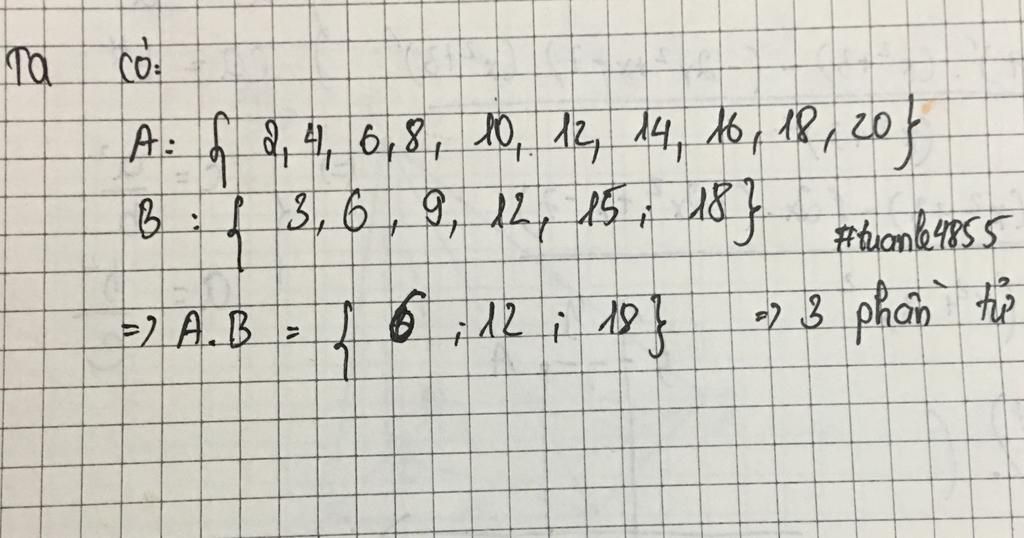 Ta có:
A: { 2, 4, 6, 8, 10, 12, 14, 16, 18, 20}
B : { 3, 6, 9, 12, 15; 18}
#tuanle4855
=> A.B = { 6 ; 12 ; 18} => 3 phần tử